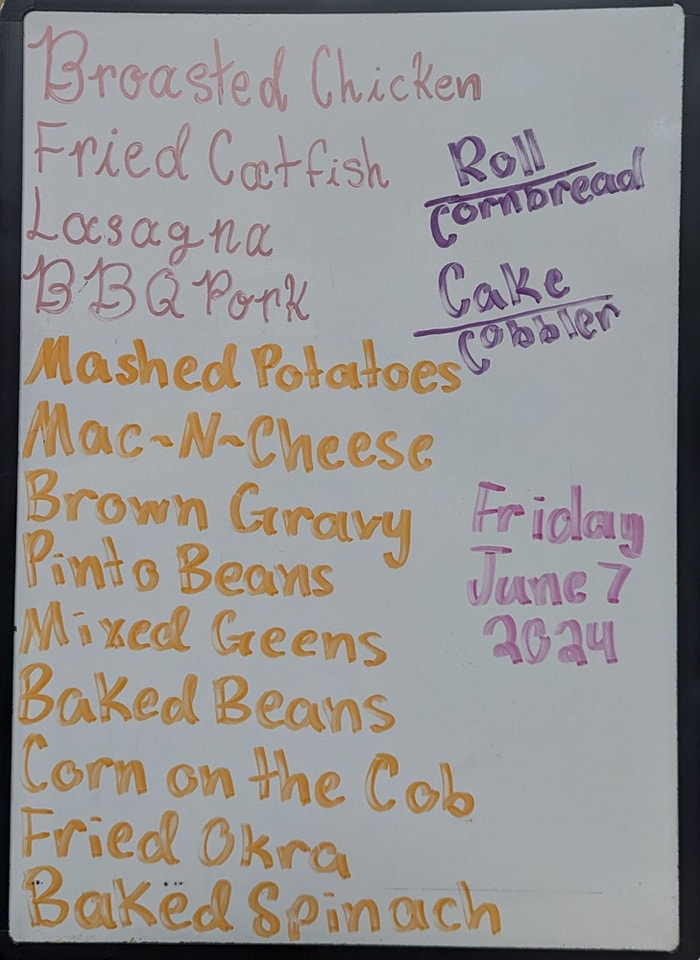 Broasted Chicken
Fried Catfish
Lasagna
BBQ Pork
Mashed Potatoes
Mac~N~Cheese
Brown Gravy
Pinto Beans
Mixed Geens
Baked Beans
Corn on the Cob
Fried Okra
Baked Spinach
Roll
Cornbread
Cake
Cobbler
Friday
June 7
2024